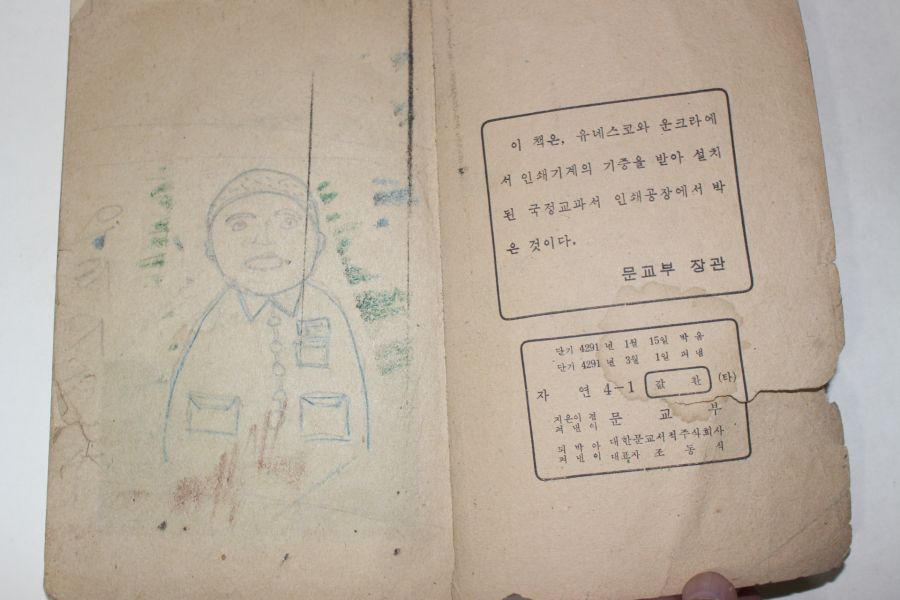 이 책은, 유네스코와 운크라에
서 인쇄기계의 기증을 받아 설치
된 국정교과서 인쇄공장에서 박
은 것이다.
문교부 장관
단기 4291 년 1월 15일 박음
단기 4291 년 3월 1일 펴냄
자 연 4-1 값 환 (타)
지은이 겸
펴낸이 문 교 부
되박아
펴낸이 대한문교서적주식회사
대표자 조 동 식